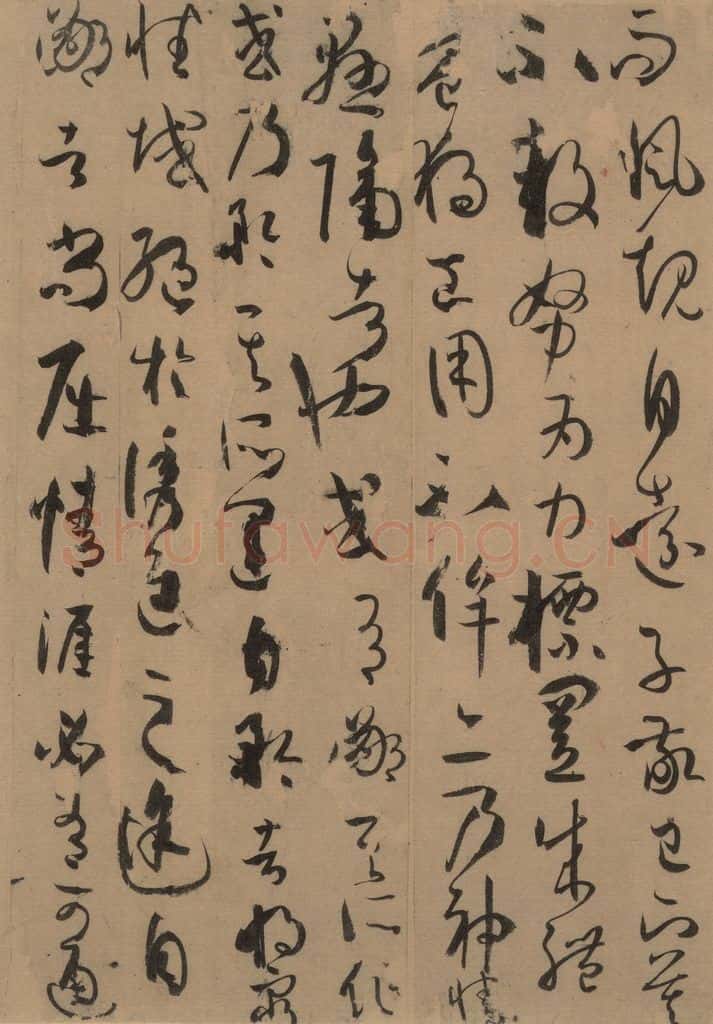 而風規自遠子敬已下莫
不鼓努為力標置成體
豈獨工用不侔亦乃神情
懸隔者也或有鄙其所作
或乃矜其所運自矜者將窮
性域絕於誘進之途自
鄙者尚屈情涯必有可通
Shufawang.CN